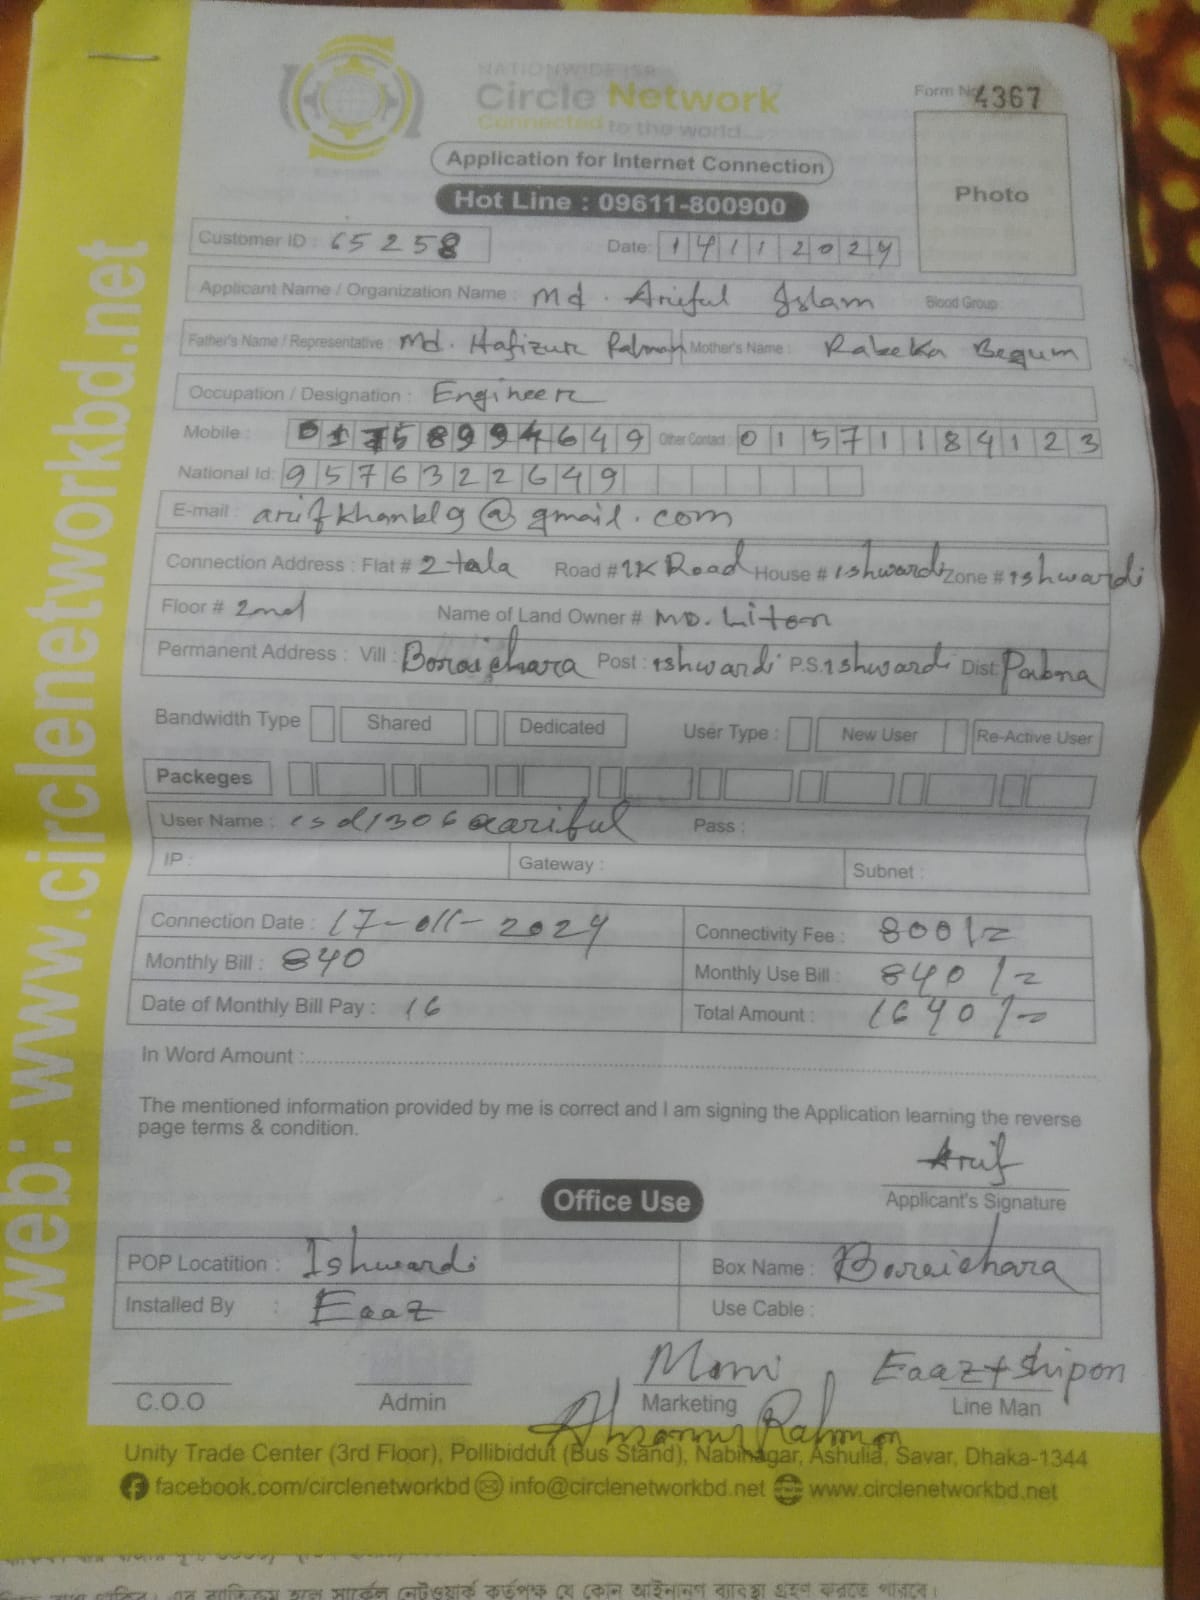 NATIONWIDE ISP
Circle Network
Connected to the world...
Form No 4367
Application for Internet Connection
Photo
Hot Line : 09611-800900
Customer ID : 65258 Date: 14112024
Applicant Name / Organization Name : Md. Ariful Islam Blood Group
Father's Name / Representative : Md. Hafizur Rahman Mother's Name : Rabeka Begum
Occupation / Designation : Engineer
Mobile : 01758994649 Other Contact : 01571184123
National Id: 9576322649
E-mail : arifkhanblg@gmail.com
Connection Address : Flat # 2 tala Road # IK Road House # ishwardi Zone # ishwardi
Floor # 2nd Name of Land Owner # MD. Liton
Permanent Address : Vill : Boraichara Post : ishwardi P.S. ishwardi Dist: Pabna
Bandwidth Type Shared Dedicated User Type : New User Re-Active User
Packeges
User Name : Pass :
IP : Gateway : Subnet :
Connection Date : 17-011-2024 Connectivity Fee : 800/=
Monthly Bill : 840 Monthly Use Bill : 840/=
Date of Monthly Bill Pay : 16 Total Amount : 1640/=
In Word Amount :
The mentioned information provided by me is correct and I am signing the Application learning the reverse
page terms & condition.
Arif
Applicant's Signature
Office Use
POP Locatition : Ishwardi Box Name : Boraichara
Installed By : Eaaz Use Cable :
Moni Eaaz + Shipon
C.O.O Admin Marketing Line Man
Rahman
Unity Trade Center (3rd Floor), Pollibiddut (Bus Stand), Nabinagar, Ashulia, Savar, Dhaka-1344
facebook.com/circlenetworkbd info@circlenetworkbd.net www.circlenetworkbd.net
web: www.circlenetworkbd.net